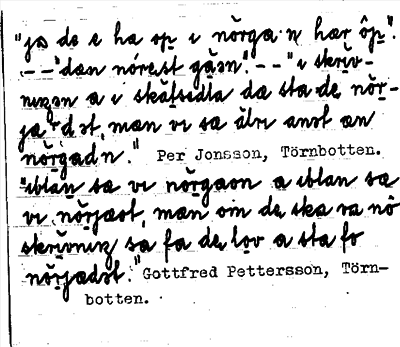 "ja de e ha op i nörga n hær ôp".
– – "dæn nórest gå̄ən". – – "i skrīv-
nɩŋən a i skatsedla dæ sta de nör-
ja rdət, mæn vi sa ålri anət æn
nörgadn." Per Jonsson, Törnbotten.
"ɩblan sa vi nörgaon a ɩblan sa
vi nörjaət, mæn om de ska va nö
skrivnɩŋ sa fa de lov a sta fo
nörjadət." Gottfred Pettersson, Törn-
botten.